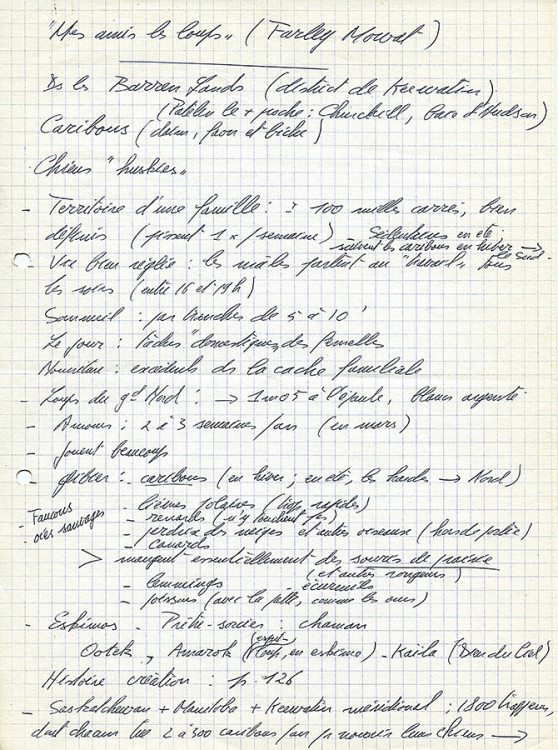 "Mes amis les loups" (Farley Mowat)
Ds les Barren Lands (district de Keewatin)
(Patelin le + proche : Churchill, baie d'Hudson)
Caribous (daim, faon et biche)
Chiens "huskies"
- Territoire d'une famille : ± 100 milles carrés, bien
définis (pissent 1 x / semaine) Sédentaires en été
suivent les caribous en hiver → le Sud
- Vie bien réglée : les mâles partent au "travail" tous
les soirs (entre 16 et 19h)
Sommeil : par tranches de 5 à 10'
Le jour : tâches "domestiques" des femelles
Nourriture : excédents ds la cache familiale
- Loups du gd Nord : → 1m05 à l'épaule, blanc argenté
- Amours : 2 à 3 semaines/an (en mars)
- jouent beaucoup
- gibier : - caribous (en hiver ; en été, les hardes → Nord)
- lièvres polaires (trop rapides)
- renards (n'y touchent pas)
- Faucons
oies sauvages
- perdrix des neiges et autres oiseaux (hors de portée)
- canards
> mangent essentiellement des souris de prairie
(et autres rongeurs)
- lemmings - écureuils
- poissons (avec la patte, comme les ours)
- Eskimos - Prêtre-sorcier : chaman
Ootek, Amarok (esprit-loup, en eskimo) - Kaila (Dieu du Ciel)
Histoire création : p. 126
- Saskatchewan + Manitoba + Keewatin méridional : 1800 trappeurs,
dont chacun tue 2 à 300 caribous/an pr nourrir leurs chiens →